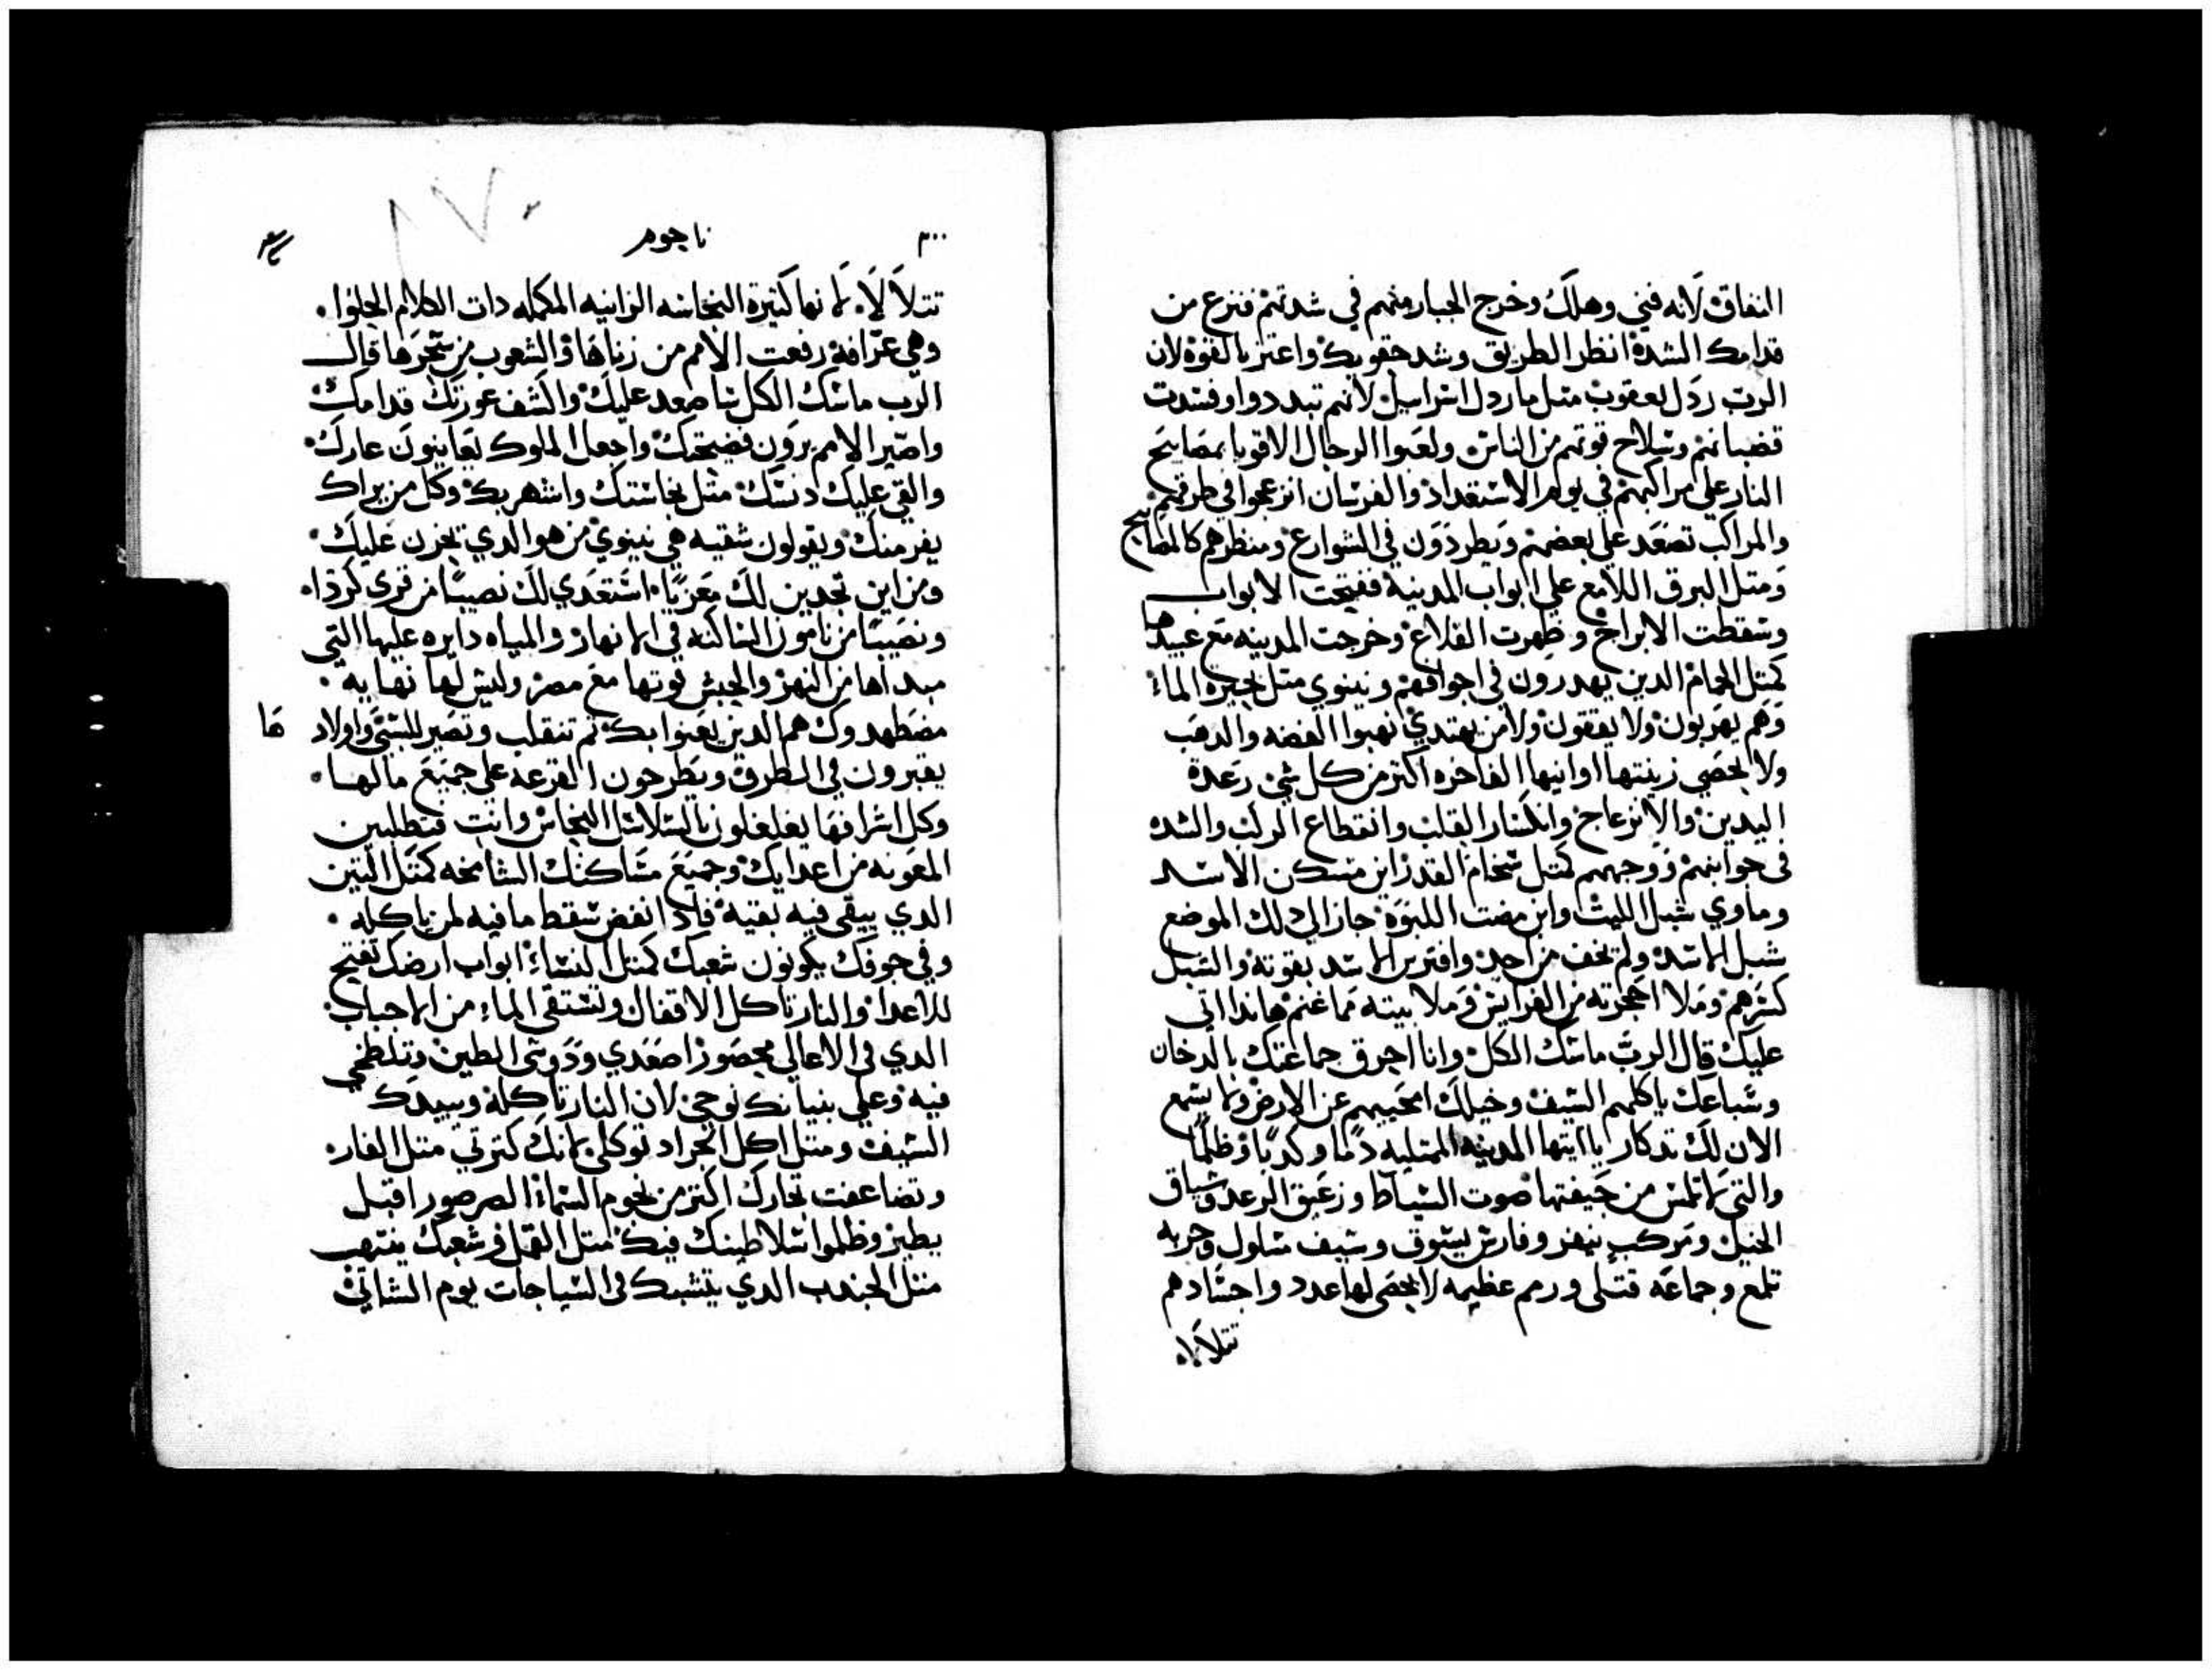 النفاق لانه فني وهلك وخرج الجبار منهم في شدتهم فنزع من
قدامك الشدة انظر الطريق وشد حقويك واعتز بالقوة لان
الرب رذل يعقوب مثل مارذل اسراييل لانهم تبددوا وفسدت
قضبانهم وسلاح قوتهم من الناس ولعبوا الرجال الاقويا بمصابيح
النار علي مراكبهم في يوم الاستعداد والفرسان انزعجوا في طرقهم
والمراكب تصعد علي بعضهم ويطردون في الشوارع ومنظرهم كالمصابيح
ومثل البرق اللامع علي ابواب المدينة ففتحت الابواب
وسقطت الابراج وظهرت القلاع وخرجت المدينه مع عبيدها
كمثل الحمام الدين يهدرون في اجوافهم ونينوي مثل بحيرة الماء
وهم يهربون ولا يقفون ولا من يهتدي نهبوا الفضه والدهب
ولا يحصي زينتها اوانيها الفاخره اكتر من كل شي رعدة
اليدين والانزعاج وانكسار القلب وانقطاع الركب والشده
في جوانبهم ووجههم كمتل سخام القدر اين مسكن الاسد
وماوي شبل الليث واين مضت اللبوة جاز الي دلك الموضع
شبل الاسد ولم يخف من احد وافترس الاسد بقوته والشبل
كسرهم وملا احجرته من الفرايس وملا بيته مما غنم هاندا اتي
عليك قال الرب ماسك الكل وانا احرق جماعتك بالدخان
وسباعك ياكلهم السيف وخيلك امحيهم عن الارض ولا يسمع
الان لك تدكار يا ايتها المدينه الممتليه دما وكدبا وظلما
والتي لا تلمس من جيفتها صوت السياط وزعيق الرعد وسباق
الخيل ومركب ينفر وفارس يسوق وسيف مسلول وحربه
تلمع وجماعه قتلي ورمم عظيمه لا يحصي لها عدد واجسادهم
تتلالا
٣٠٠ ناحوم
تتلالا لانها كتيرة النجاسه الزانيه المكمله دات الكلام الحلوا
وهي عرافة رفعت الامم من زناها والشعوب من سحرها قال
الرب ماسك الكل سا صعد عليك واكشف عورتك قدامك
واصير الامم يرون فضيحتك واجعل الملوك يعاينون عارك
والقي عليك دنسك متل نجاستك واشهر بك وكل من يراك
يفر منك ويقولون شقيه هي نينوي من هو الدي يحزن عليك
ومن اين تجدين لك معزيا استعدي لك نصيبا من قري كرذا
ونصيبا من نامون الساكنه في الانهار والمياه دايره عليها التي
مبداها من النهر والحبش قوتها مع مصر وليس لها نهايه
مضطهدوك هم الدين يعنوا بك تم تنقلب وتصير للسبي واولادها
يقبرون في الطرق ويطرحون القرعه علي جميع مالها
وكل اشرافها يغلغلون بالسلاسل النحاس وانت فتطلبين
المعونه من اعدايك وجميع مساكنك الشامخه كمتل التين
الدي يبقي فيه بقية فادا انفض سقط ما فيه لمن ياكله
وفي جوفك يكونون شعبك كمتل النساء ابواب ارضك تفتح
للاعدا والنار تاكل الاقفال وتستقي الماء من الاجباب
الدي في الاعالي محصور اصعدي ودوسي الطين وتلطخي
فيه وعلي بنيانك نوحي لان النار تاكله ويبيدك
السيف ومتل اكل الجراد توكلي لانك كترتي متل الفار
وتضاعفت تجارك اكتر من نجوم السماء الصرصور اقبل
يطير وظلموا سلاطينك فيك متل القمل في شعبك ينتهب
متل الجندب الدي يتشبك في السياجات يوم الشاتي